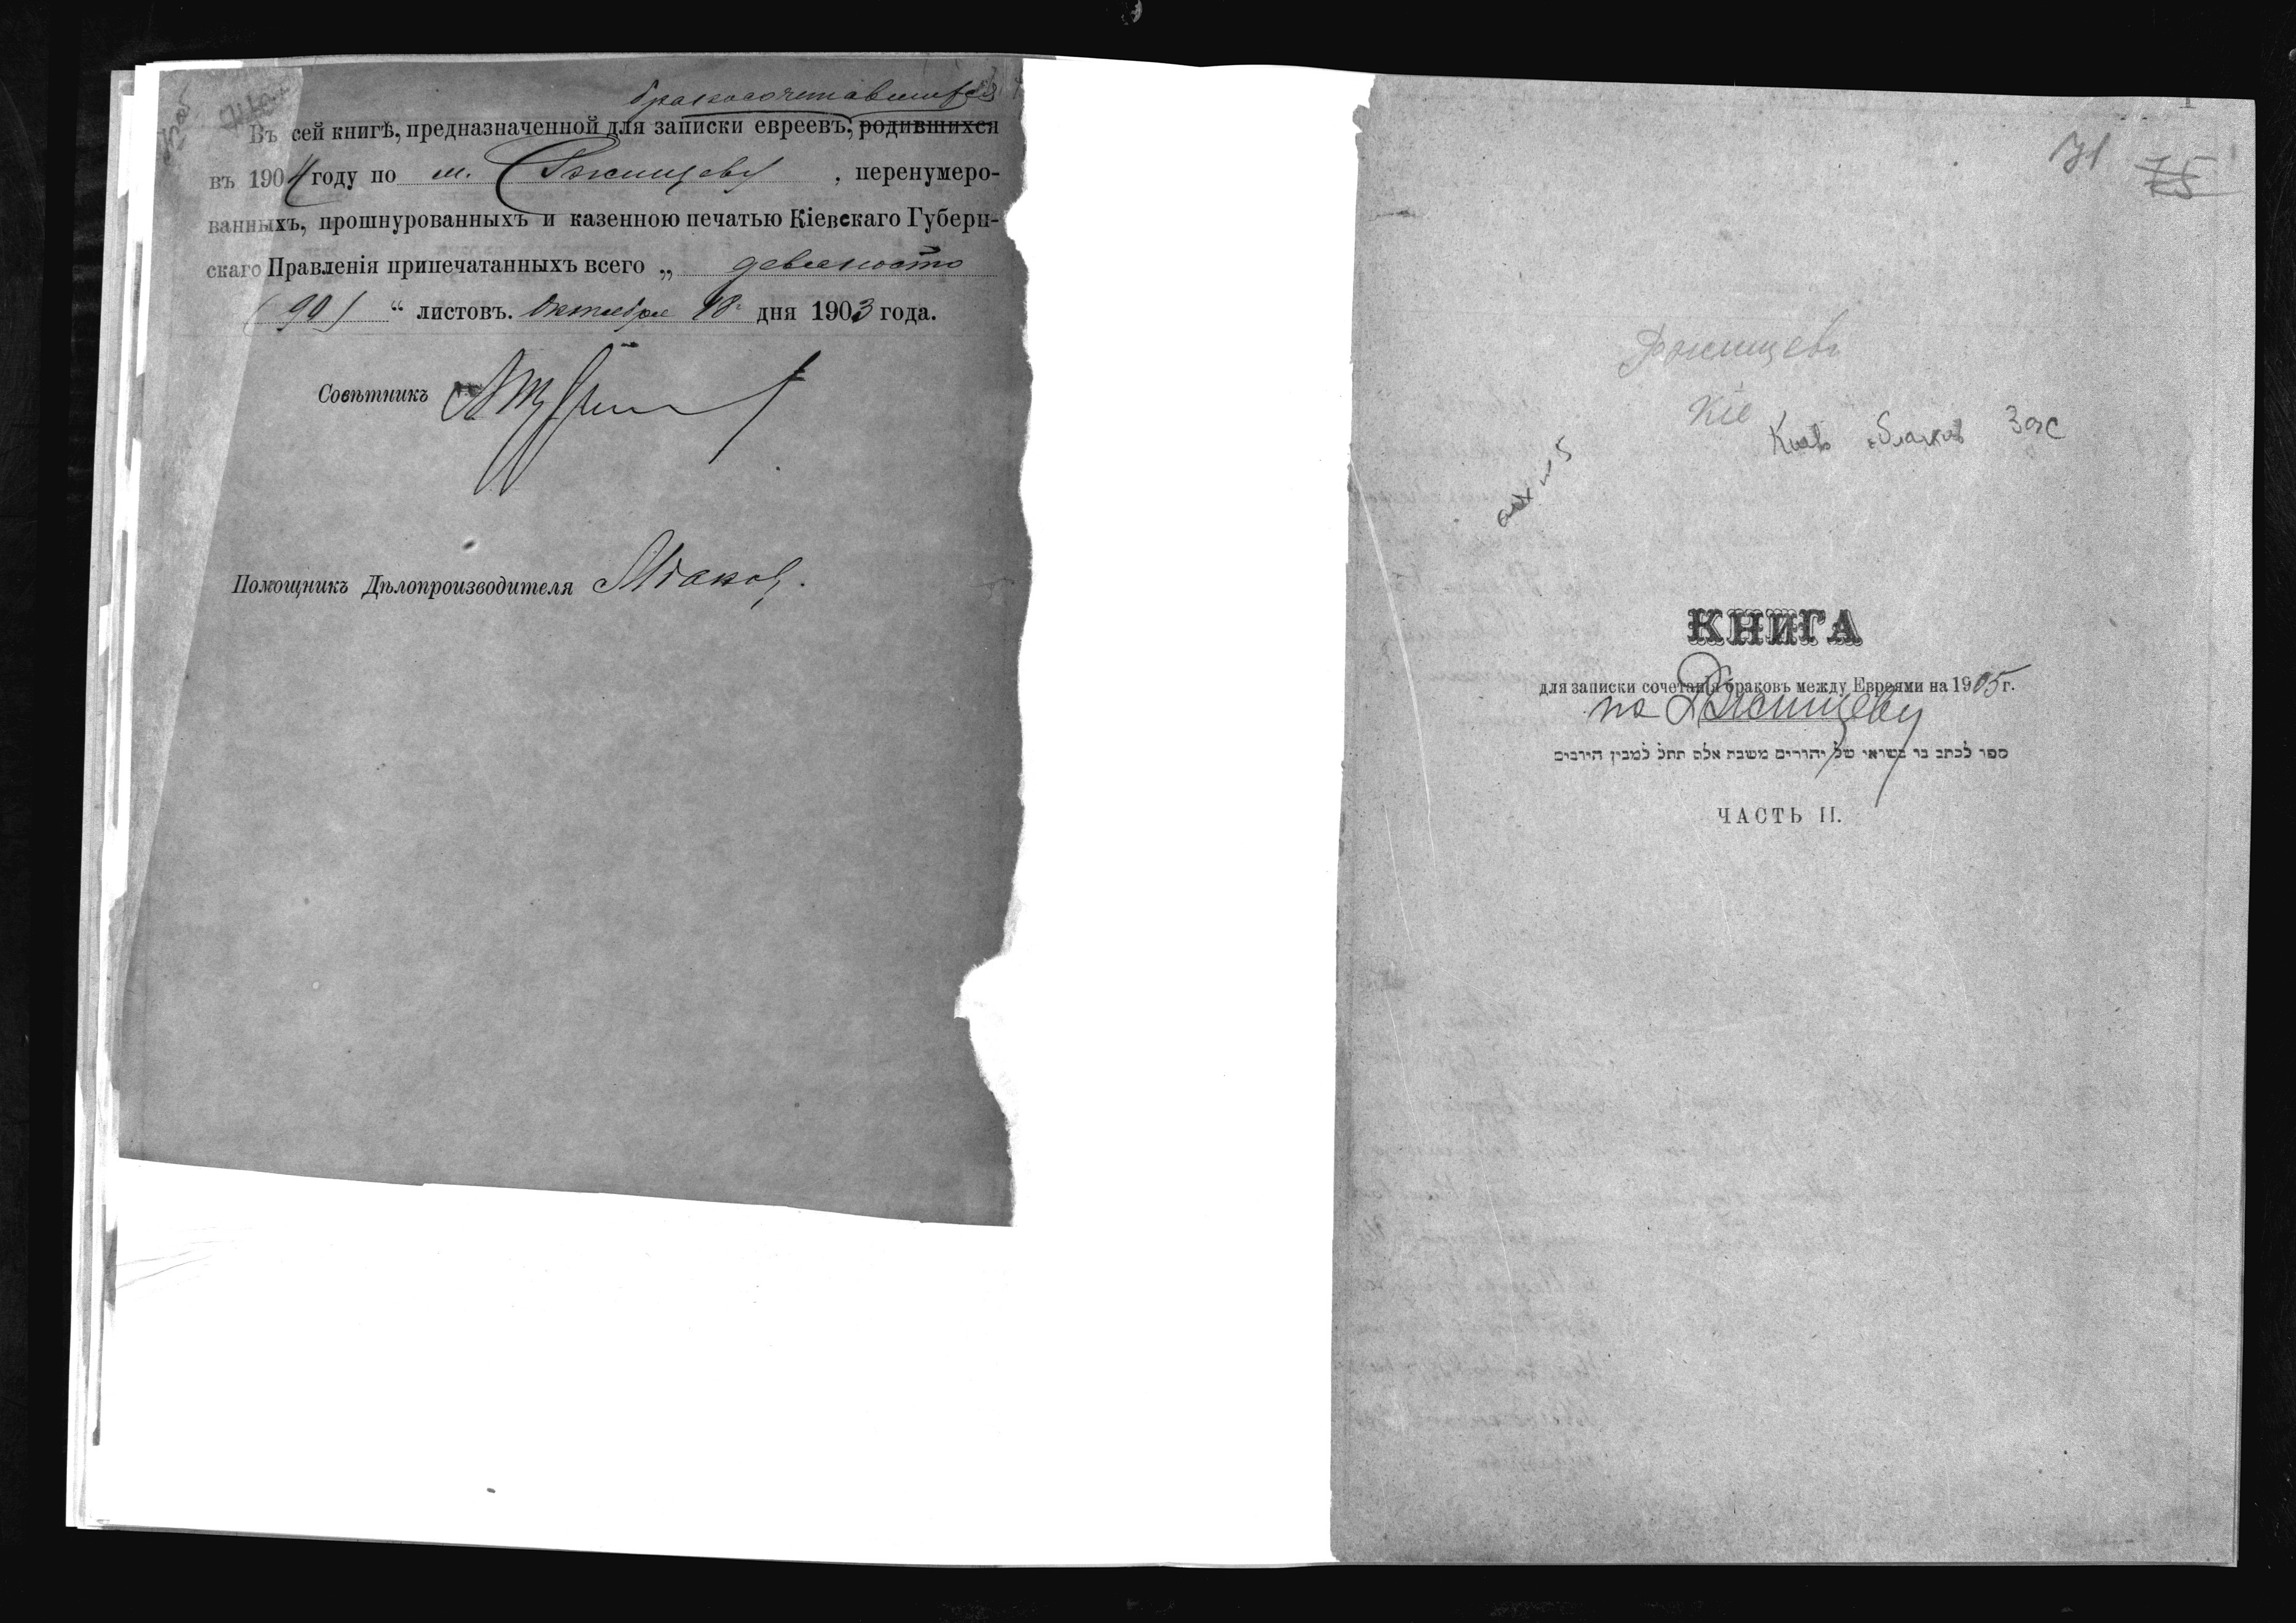 бракосочетавшихся
Въ сей книгѣ, предназначенной для записки евреевъ, родившихся
въ 1904 году по м. Ржищеву, перенумеро-
ванныхъ, прошнурованныхъ и казенною печатью Кіевскаго Губерн-
скаго Правленія припечатанныхъ всего „ девяносто
(90) “ листовъ. Октября 18 дня 1903 года.
Совѣтникъ
Помощникъ Дѣлопроизводителя
71 75
Ржищевъ
Кіе
Киев Загс
КНИГА
для записки сочетанія браковъ между Евреями на 1905 г.
по Ржищеву
ספר לכתב בו נשואי של יהודים משבת אלם תתל למבין הירבים
ЧАСТЬ II.